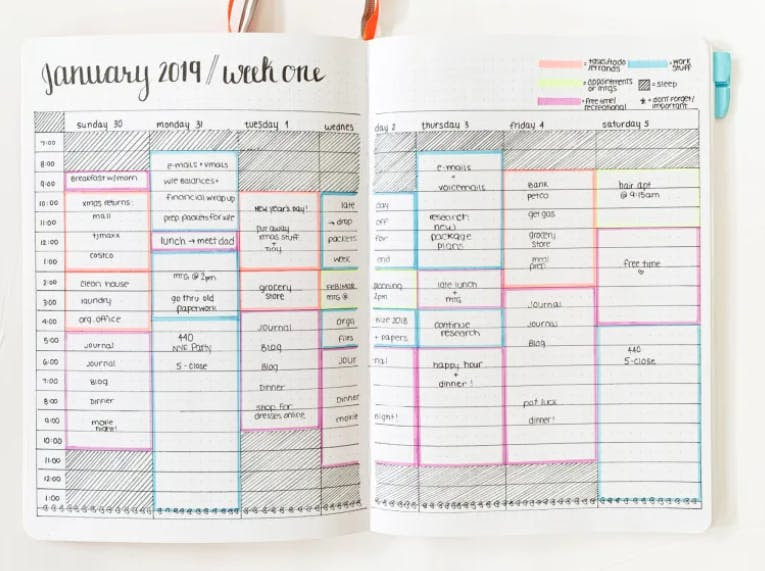 January 2019 / week one
= tasks/todo errands
= work stuff
= appointments or mtgs
= sleep
= free time/ recreational
* = don't forget/ important
sunday 30
monday 31
tuesday 1
wednes
day 2
thursday 3
friday 4
saturday 5
7:00
8:00
9:00
10:00
11:00
12:00
1:00
2:00
3:00
4:00
5:00
6:00
7:00
8:00
9:00
10:00
11:00
12:00
1:00
Breakfast w/mom
xmas returns:
mall
tjmaxx
costco
clean house
laundry
org. office
Journal
Journal
Blog
Dinner
movie
night!
e-mails + vmails
wire Balances +
financial wrapup
prep packets for wire
lunch → meet dad
mtg @ 2pm
go thru old
paperwork
440
NYE Party
5-close
New Year's Day!
put away
xmas stuff
+
tidy
grocery
store
Journal
Blog
Blog
Dinner
shop for
dresses online
late
→ drop
packets
week
mtg @
orga
files
Jour
Dinner
movie
day
off
for
end
planning
2pm
nize 2018
+ papers
nal
night!
e-mails
+
voicemails
research
new
package
plans
late lunch
+
mtg
continue
research
happy hour
+
dinner!
Bank
petco
get gas
grocery
store
meal
prep
Journal
Journal
Blog
pot luck
dinner!
hair apt
@ 9:15am
free time
440
5-close